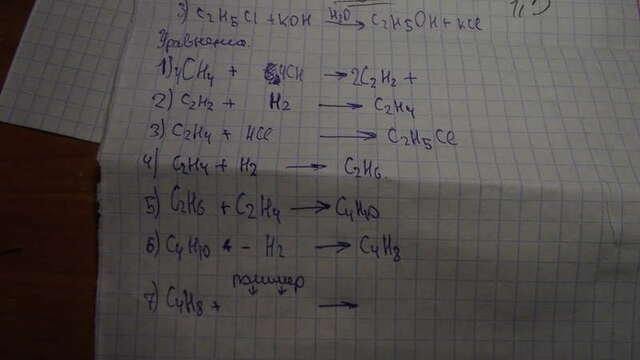 3) C2H5Cl + KOH H2O → C2H5OH + KCl
Уравнения.
1) 4CH4 + → 2C2H2 +
2) C2H2 + H2 → C2H4
3) C2H4 + HCl → C2H5Cl
4) C2H4 + H2 → C2H6
5) C2H6 + C2H4 → C4H10
6) C4H10 - H2 → C4H8
полимер
7) C4H8 + →